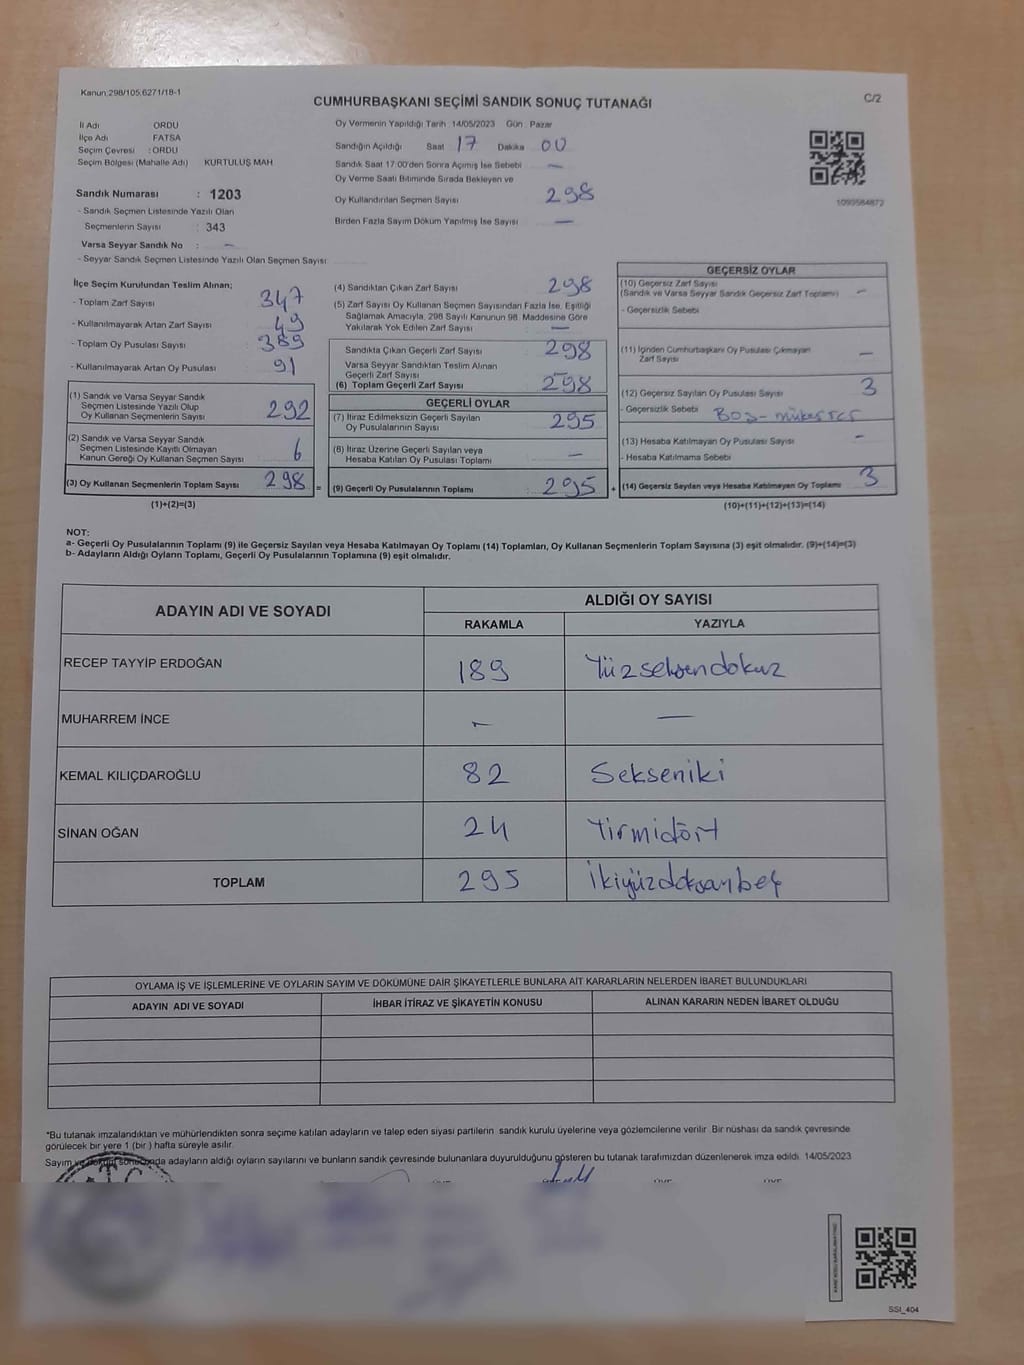 Kanun:298/105.6271/18-1
C/2
CUMHURBAŞKANI SEÇİMİ SANDIK SONUÇ TUTANAĞI
İl Adı ORDU
İlçe Adı FATSA
Seçim Çevresi : ORDU
Seçim Bölgesi (Mahalle Adı) KURTULUŞ MAH
Sandık Numarası : 1203
- Sandık Seçmen Listesinde Yazılı Olan
Seçmenlerin Sayısı : 343
Varsa Seyyar Sandık No : –
- Seyyar Sandık Seçmen Listesinde Yazılı Olan Seçmen Sayısı
Oy Vermenin Yapıldığı Tarih :14/05/2023 Gün : Pazar
Sandığın Açıldığı Saat 17 Dakika 00
Sandık Saat 17:00'den Sonra Açmış İse Sebebi –
Oy Verme Saati Bitiminde Sırada Bekleyen ve
Oy Kullandırılan Seçmen Sayısı 298
Birden Fazla Sayım Döküm Yapılmış İse Sayısı –
1093584872
İlçe Seçim Kurulundan Teslim Alınan;
- Toplam Zarf Sayısı 347
- Kullanılmayarak Artan Zarf Sayısı 49
- Toplam Oy Pusulası Sayısı 389
- Kullanılmayarak Artan Oy Pusulası 91
(1) Sandık ve Varsa Seyyar Sandık
Seçmen Listesinde Yazılı Olup
Oy Kullanan Seçmenlerin Sayısı 292
(2) Sandık ve Varsa Seyyar Sandık
Seçmen Listesinde Kayıtlı Olmayan
Kanun Gereği Oy Kullanan Seçmen Sayısı 6
(3) Oy Kullanan Seçmenlerin Toplam Sayısı 298
(1)+(2)=(3)
(4) Sandıktan Çıkan Zarf Sayısı 298
(5) Zarf Sayısı Oy Kullanan Seçmen Sayısından Fazla İse, Eşitliği
Sağlamak Amacıyla, 298 Sayılı Kanunun 98. Maddesine Göre
Yakılarak Yok Edilen Zarf Sayısı –
Sandıkta Çıkan Geçerli Zarf Sayısı 298
Varsa Seyyar Sandıktan Teslim Alınan
Geçerli Zarf Sayısı –
(6) Toplam Geçerli Zarf Sayısı 298
GEÇERLİ OYLAR
(7) İtiraz Edilmeksizin Geçerli Sayılan
Oy Pusulalarının Sayısı 295
(8) İtiraz Üzerine Geçerli Sayılan veya
Hesaba Katılan Oy Pusulası Toplamı –
= (9) Geçerli Oy Pusulalarının Toplamı 295 +
GEÇERSİZ OYLAR
(10) Geçersiz Zarf Sayısı
(Sandık ve Varsa Seyyar Sandık Geçersiz Zarf Toplamı) –
- Geçersizlik Sebebi
(11) İçinden Cumhurbaşkanı Oy Pusulası Çıkmayan
Zarf Sayısı –
(12) Geçersiz Sayılan Oy Pusulası Sayısı 3
- Geçersizlik Sebebi BOŞ-mükerrer
(13) Hesaba Katılmayan Oy Pusulası Sayısı –
- Hesaba Katılmama Sebebi
(14) Geçersiz Sayılan veya Hesaba Katılmayan Oy Toplamı 3
(10)+(11)+(12)+(13)=(14)
NOT:
a- Geçerli Oy Pusulalarının Toplamı (9) ile Geçersiz Sayılan veya Hesaba Katılmayan Oy Toplamı (14) Toplamları, Oy Kullanan Seçmenlerin Toplam Sayısına (3) eşit olmalıdır. (9)+(14)=(3)
b- Adayların Aldığı Oyların Toplamı, Geçerli Oy Pusulalarının Toplamına (9) eşit olmalıdır.
ADAYIN ADI VE SOYADI ALDIĞI OY SAYISI
RAKAMLA YAZIYLA
RECEP TAYYİP ERDOĞAN 189 Yüzseksendokuz
MUHARREM İNCE – –
KEMAL KILIÇDAROĞLU 82 Sekseniki
SİNAN OĞAN 24 Yirmidört
TOPLAM 295 İkiyüzdoksanbeş
OYLAMA İŞ VE İŞLEMLERİNE VE OYLARIN SAYIM VE DÖKÜMÜNE DAİR ŞİKAYETLERLE BUNLARA AİT KARARLARIN NELERDEN İBARET BULUNDUKLARI
ADAYIN ADI VE SOYADI İHBAR İTİRAZ VE ŞİKAYETİN KONUSU ALINAN KARARIN NEDEN İBARET OLDUĞU
*Bu tutanak imzalandıktan ve mühürlendikten sonra seçime katılan adayların ve talep eden siyasi partilerin sandık kurulu üyelerine veya gözlemcilerine verilir. Bir nüshası da sandık çevresinde
görülecek bir yere 1 (bir ) hafta süreyle asılır.
Sayım ve döküm sonucunda adayların aldığı oyların sayılarını ve bunların sandık çevresinde bulunanlara duyurulduğunu gösteren bu tutanak tarafımızdan düzenlenerek imza edildi. 14/05/2023
SSI_404